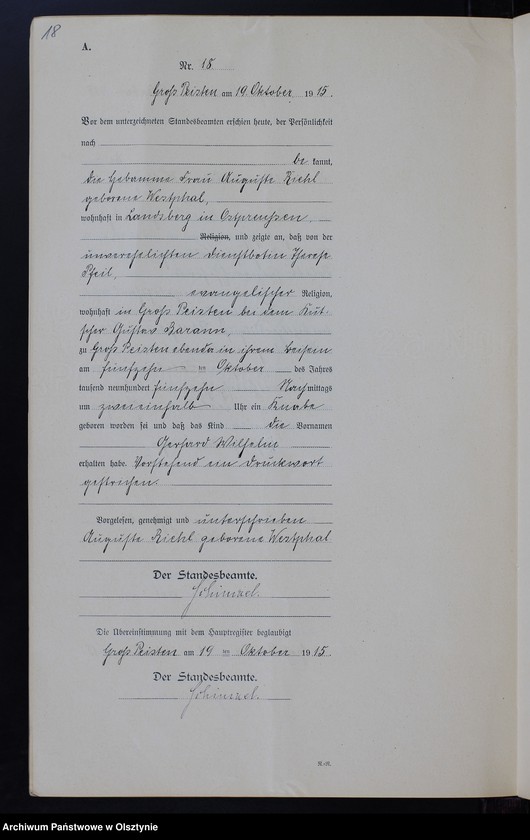 18
A.
Nr. 15
Groß Peisten am 19 Oktober 1915.
Vor dem unterzeichneten Standesbeamten erschien heute, der Persönlichkeit
nach
be kannt,
die Hebamme Frau Auguste Riehl
geborene Westphal,
wohnhaft in Landsberg in Ostpreußen,
Religion, und zeigte an, daß von der
unverehelichten Dienstbotin Therese
Pfeil,
evangelischer Religion,
wohnhaft in Groß Peisten bei dem Kut-
scher Gustav
zu Groß Peisten ebenda in ihrem Beisein
am fünfzehn ten Oktober des Jahres
tausend neunhundert fünfzehn Nachmittags
um zweieinhalb Uhr ein Knabe
geboren worden sei und daß das Kind die Vornamen
Gerhard Wilhelm
erhalten habe. Vorstehend ein Druckwort
gestrichen.
Vorgelesen, genehmigt und unterschrieben
Auguste Riehl geborene Westphal
Der Standesbeamte.
Die Übereinstimmung mit dem Hauptregister beglaubigt
Groß Peisten am 19 ten Oktober 1915.
Der Standesbeamte.
Archiwum Państwowe w Olsztynie